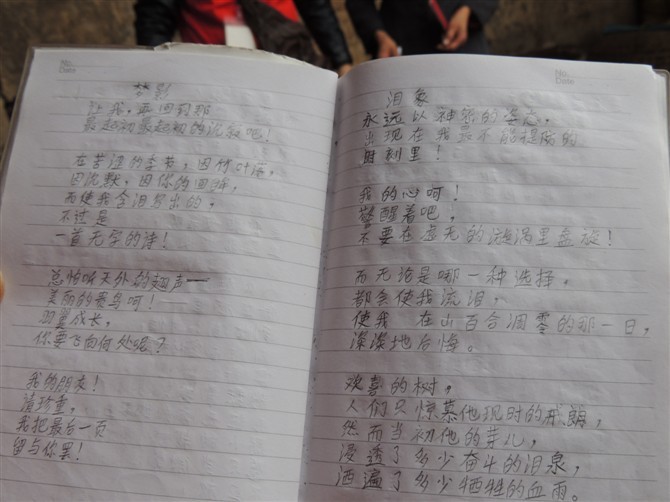 No.
Date
梦影
让我,再回到那
最起初最起初的沉寂吧!
在苦涩的季节,因竹叶落,
因沉默,因你的回眸,
而使我含泪写出的,
不过是
一首无字的诗!
总怕听天外的翅声——
美丽的爱鸟呵!
羽翼成长,
你要飞向何处呢?
我的朋友!
请珍重,
我把最后一页
留与你罢!
No.
Date
泪象
永远以神秘的姿态,
出现在我最不能提防的
时刻里!
我的心呵!
警醒着吧,
不要在虚无的漩涡里盘旋!
而无论是哪一种选择,
都会使我流泪,
使我 在山百合凋零的那一日,
深深地后悔。
欢喜的树,
人们只惊慕他现时的明朗,
然而当初他的芽儿,
浸透了多少奋斗的泪泉,
洒遍了多少牺牲的血雨。